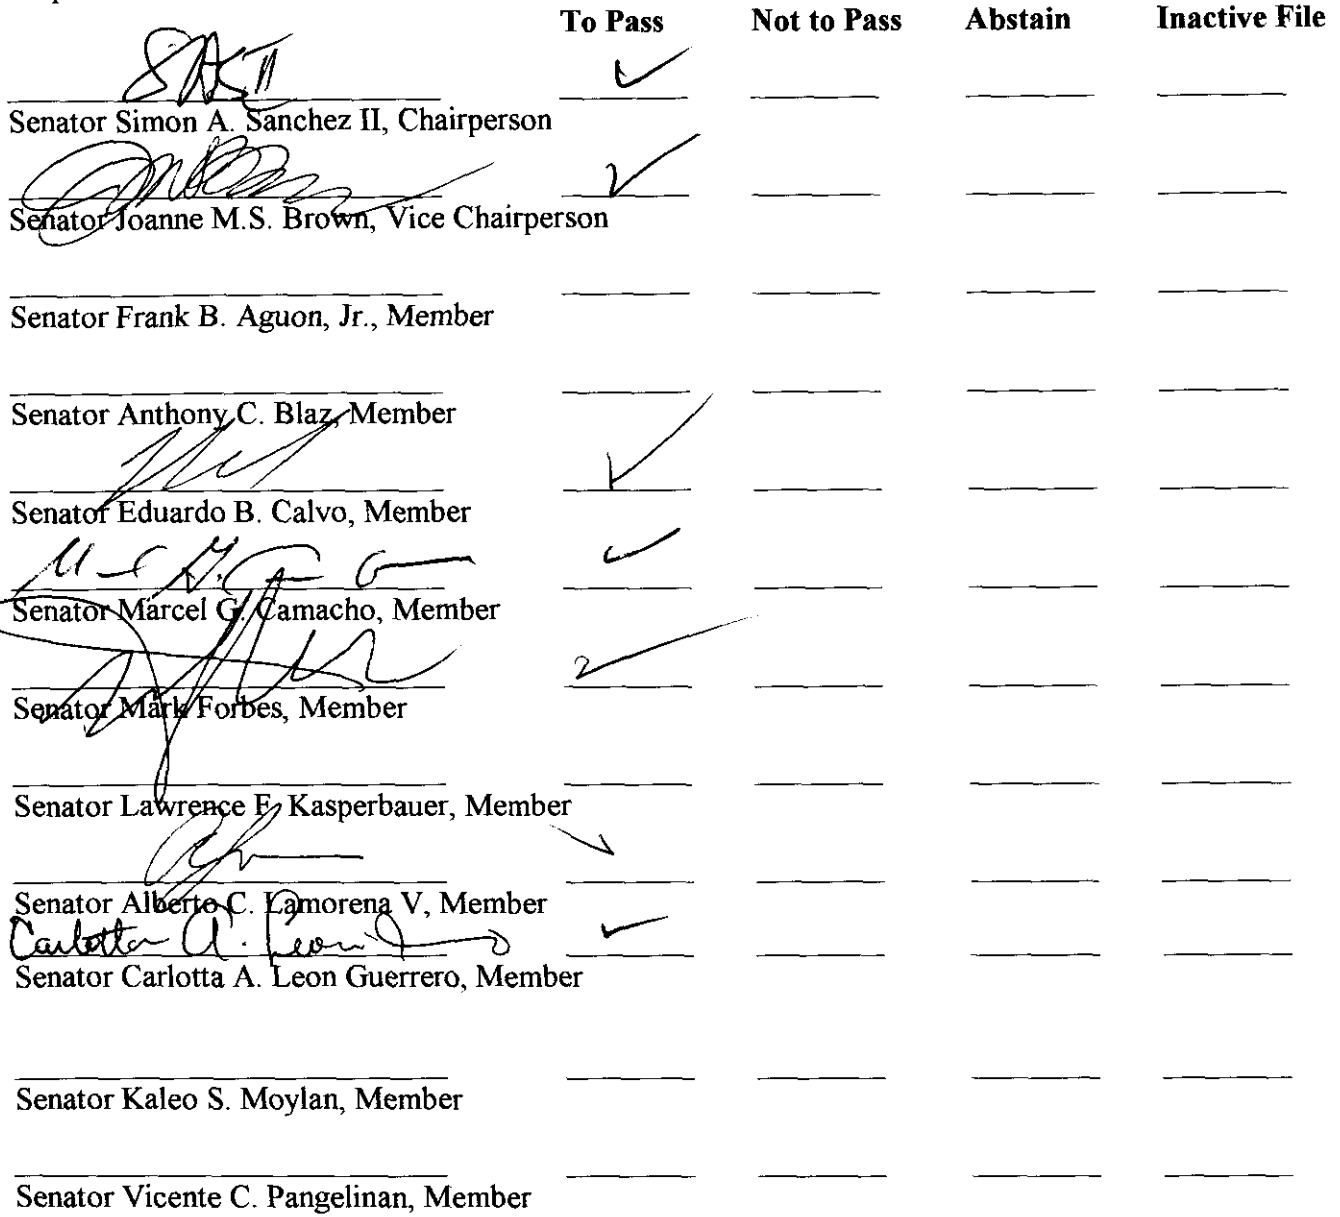 To Pass Not to Pass Abstain Inactive File
Senator Simon A. Sanchez II, Chairperson
Senator Joanne M.S. Brown, Vice Chairperson
Senator Frank B. Aguon, Jr., Member
Senator Anthony C. Blaz, Member
Senator Eduardo B. Calvo, Member
Senator Marcel G. Camacho, Member
Senator Mark Forbes, Member
Senator Lawrence F. Kasperbauer, Member
Senator Alberto C. Lamorena V, Member
Carlotta A. Leon
Senator Carlotta A. Leon Guerrero, Member
Senator Kaleo S. Moylan, Member
Senator Vicente C. Pangelinan, Member